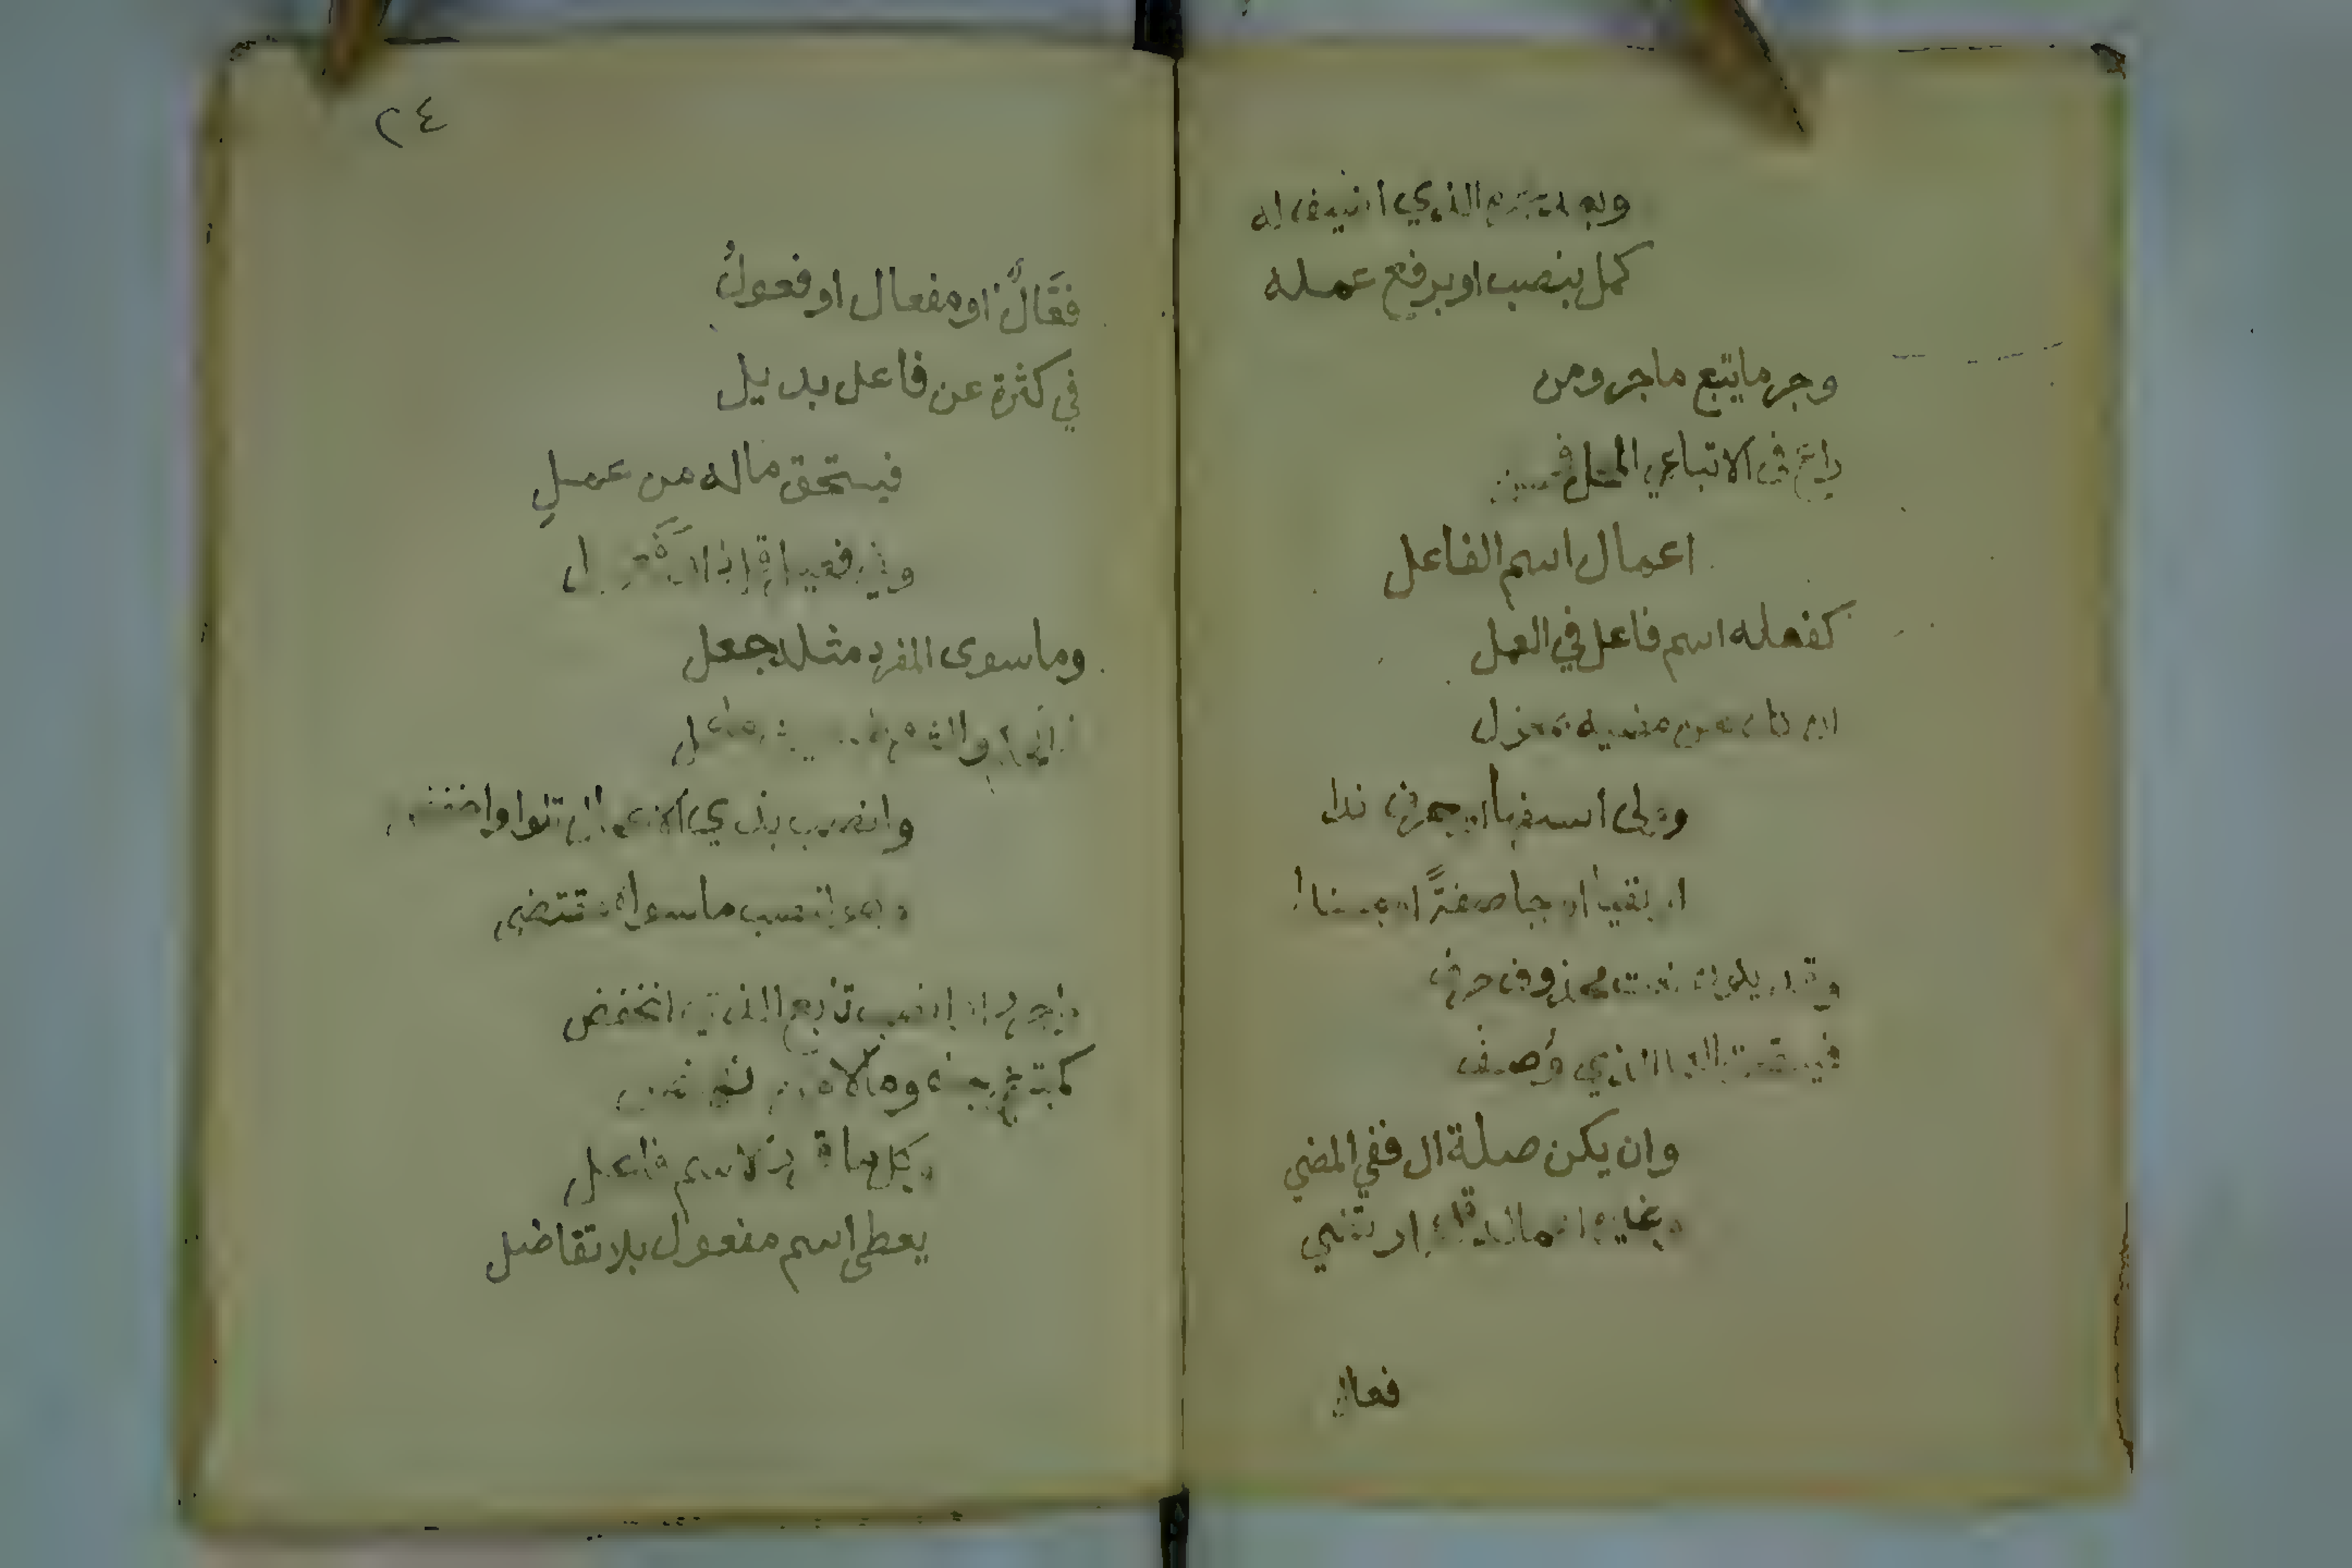 وبعد جره الذي اضيف له
كمل بنصب او برفع عمله
وجر ما يتبع ما جر ومن
راعى في الاتباع المحل فحسن
اعمال اسم الفاعل
كفعله اسم فاعل في العمل
ان كان عن مضيه بمعزل
وولى استفهاما او حرف ندا
او نفيا او جا صفةً او مسندا
وقد يكون نعت محذوف عرف
فيستحق العمل الذي وُصف
وان يكن صلة ال ففي المضي
وغيره اعماله قد ارتضي
فعال
٢٤
فعَّالٌ او مفعال او فعولُ
في كثرة عن فاعل بديل
فيستحق ماله من عملِ
وفي فعيل قل ذا وفعل
وما سوى المفرد مثله جعل
في الحكم والشروط حيثما عمل
وانصب بذي الاعمال تلوا واخفض
وهو لنصب ما سواه مقتضي
واجرر او انصب تابع الذي انخفض
كمبتغي جاه ومالا من نهض
وكل ما قرر لاسم فاعل
يعطى اسم مفعول بلا تفاضل